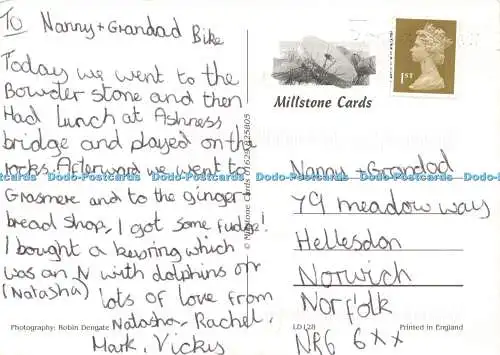 To Nanny + Grandad Bike
Today we went to the
Bowder stone and then
Had lunch at Ashness
bridge and played on the
rocks. Afterward we went to
Grasmere and to the ginger
bread shop, I got some fudge!
I bought a keuring which
was an N with dolphins on
(Natasha) lots of love from
Natasha, Rachel,
Mark, Vickys
Photography: Robin Dengate
© Millstone Cards 01629 825605
1ST
Millstone Cards
Nanny + Grandad
79 meadow way
Hellesdon
Norwich
Norfolk
NR6 6xx
LD128
Printed in England
Dodo-Postcards Dodo-Postcards Dodo-Postcards Dodo-Postcards Dodo-Postcards Dodo-Postcards